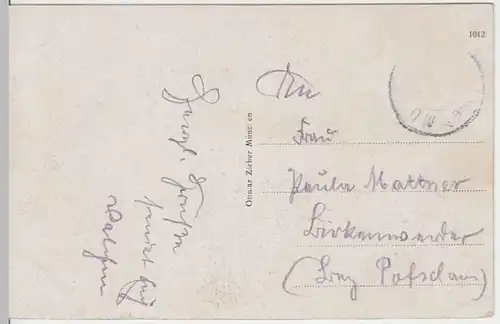 1012
Herzl. Grüße
sendet
An
Frau
Paula Mattner
Birkenwerder
(Bez Potsdam)
Ottmar Zieher München